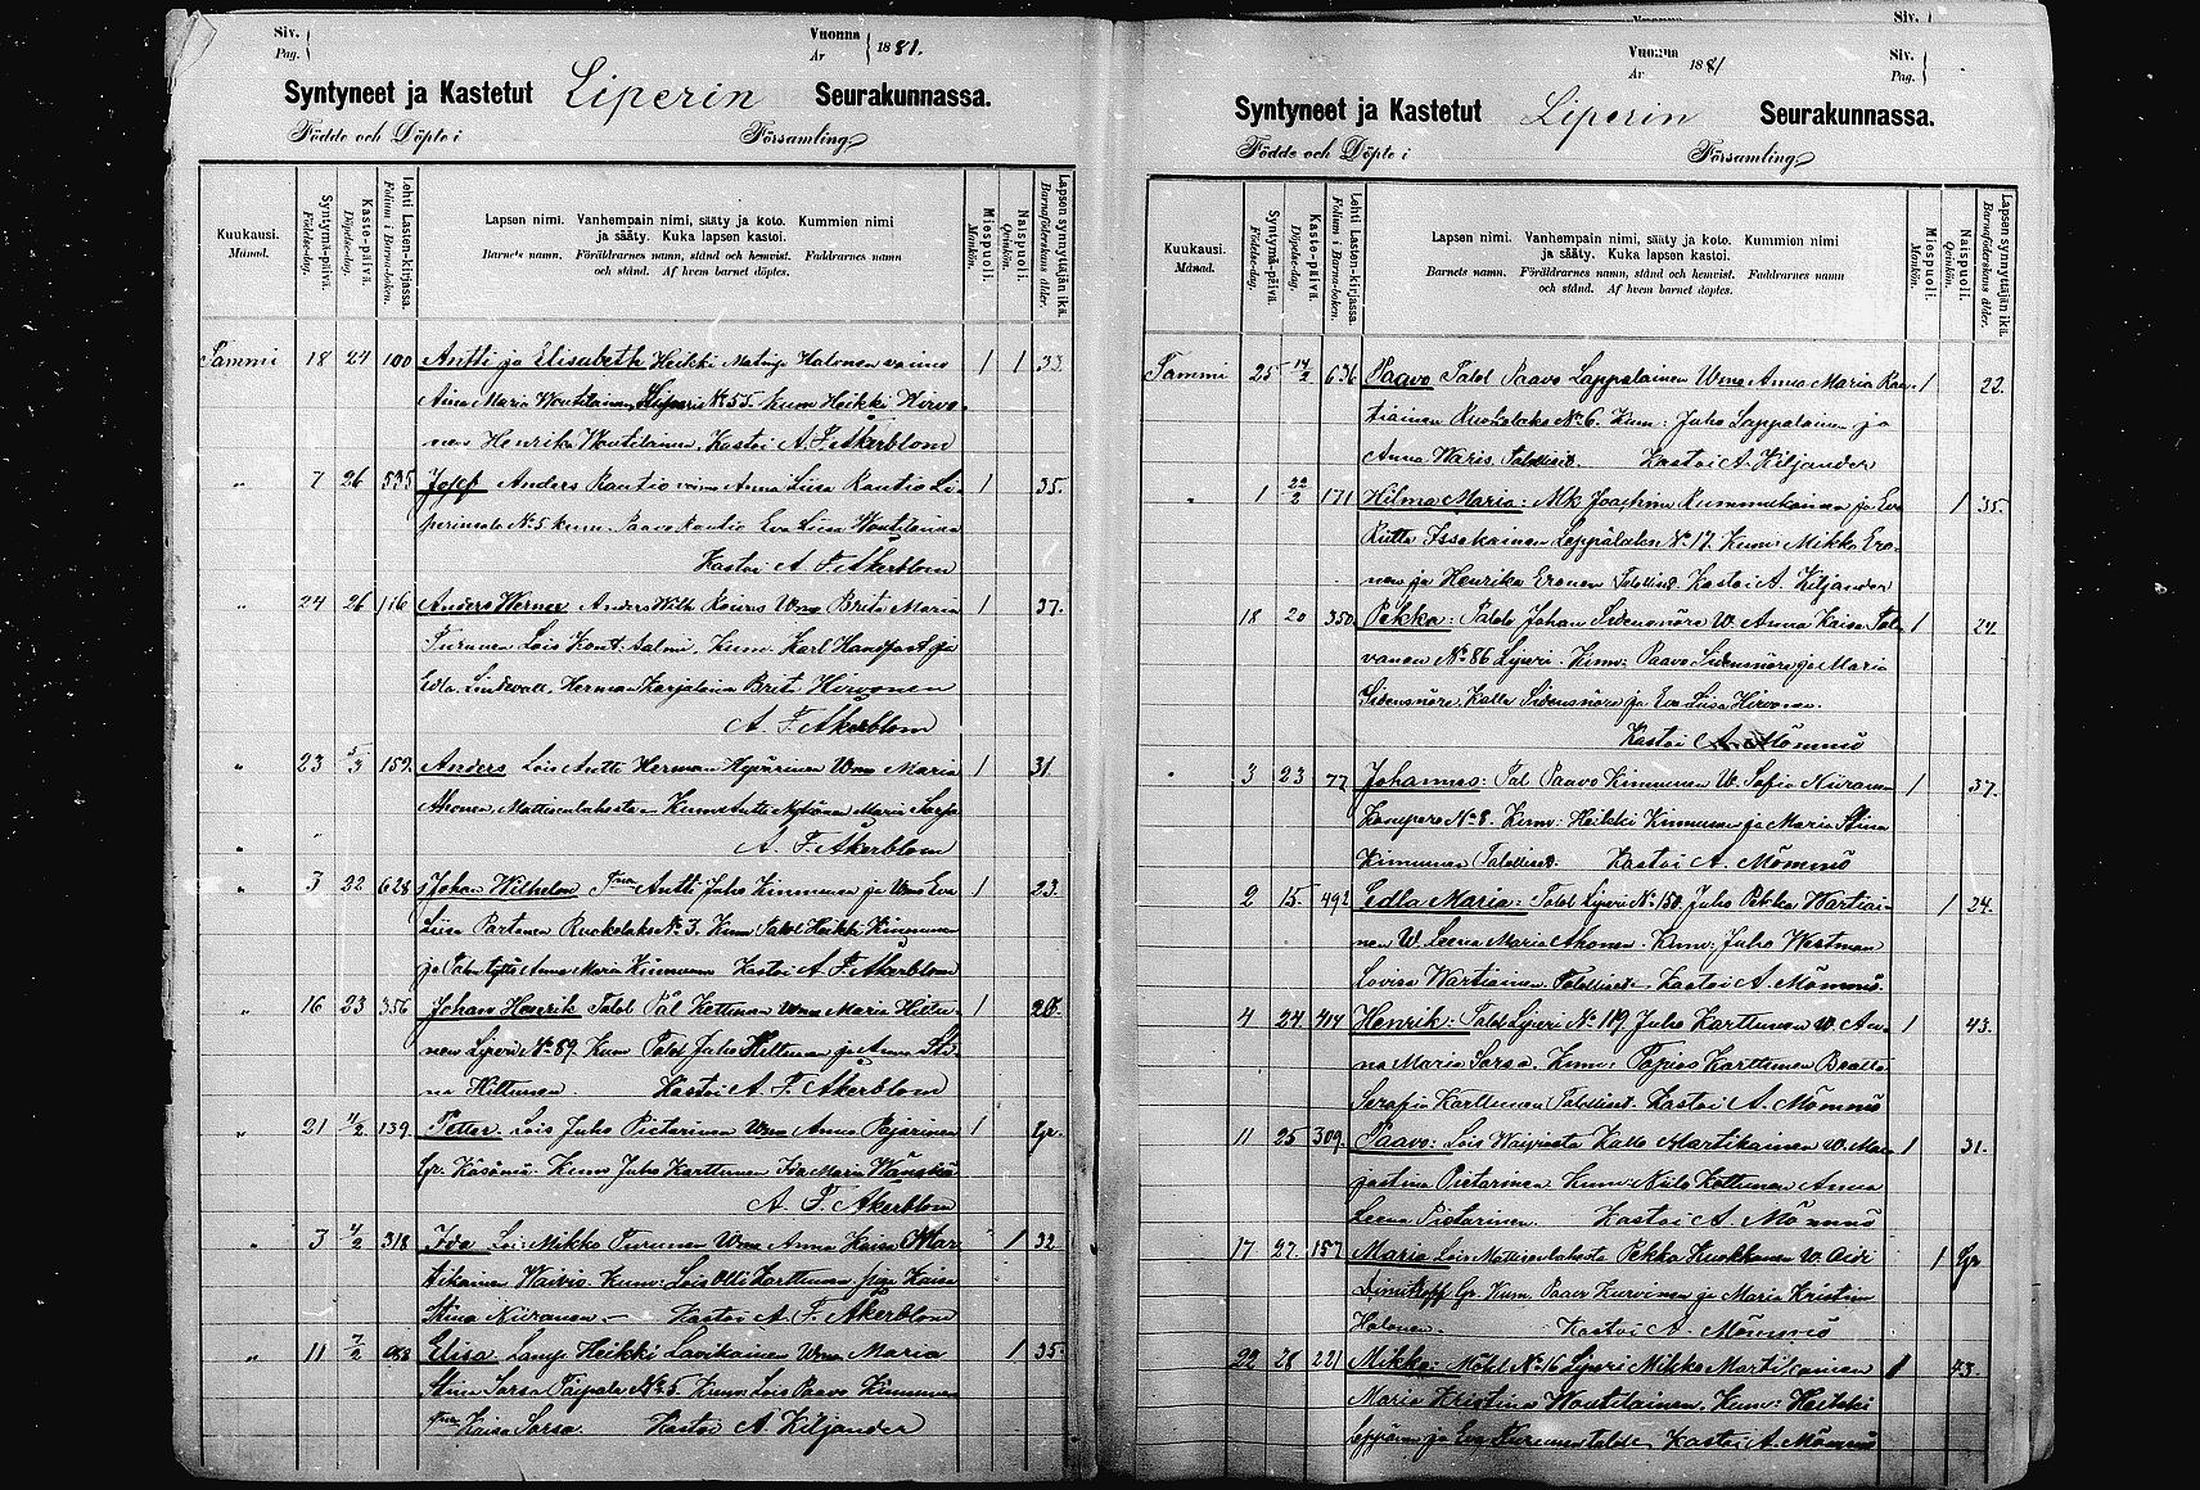 Siv. Pag.
Vuonna År 1881.
Syntyneet ja Kastetut Liperin Seurakunnassa.
Födde och Döpte i Församling
Kuukausi. Månad.
Syntymä-päivä. Födelse-dag.
Kaste-päivä. Döpelse-dag.
Lehti Lasten-kirjassa. Folium i Barna-boken.
Lapsen nimi. Vanhempain nimi, sääty ja koto. Kummien nimi
ja sääty. Kuka lapsen kastoi.
Barnets namn. Föräldrarnes namn, stånd och hemvist. Faddrarnes namn
och stånd. Af hvem barnet döptes.
Miespuoli. Mankön.
Naispuoli. Qvinkön.
Lapsen synnyttäjän ikä. Barnaföderskans ålder.
Tammi 18 24 100 Antti ja Elisabeth Heikki Halonen vaimo 1 1 33
Aina Maria Woutilainen No 55. Kum Heikki Hirvo-
nen Henrika Woutilainen. Kastoi A. F. Åkerblom
" 7 26 535 Josef Anders Rautio vaimo Anna Liisa Rautio Li- 1 35.
perinsalo No 5 Kum. Paavo Rautio Eva Liisa Woutilainen
Kastoi A. F. Åkerblom
" 24 26 116 Anders Werner Anders Wilh Brita Maria 1 37.
Turunen Lois Kum. Karl Handfast ja
Edla Lindevall, Herman Karjalainen Brita Hirvonen
A. F. Åkerblom
" 23 5/3 159. Anders Lois Antti Herman Hyvärinen Wmo Maria 1 31
Ahonen Mattisenlahesta Kum Antti Maria
" A. F. Åkerblom
" 3 22 628 Johan Wilhelm Antti Juho Kinnunen ja Wmo Eva 1 23.
Liisa Partanen No 3. Kum Talol Heikki Kinnunen
ja Anna Maria Kinnunen Kastoi A. F. Åkerblom
" 16 23 356 Johan Henrik Talol Pål Kettunen Wmo Maria Hiltu- 1
nen Liperi No 89. Kum Talol Juho Hiltunen ja Anna Sti-
na Hiltunen. Kastoi A. F. Åkerblom
" 21 4/2 139. Petter. Lois Juho Pietarinen Wmo Anna Pajarinen 1 Gr.
Gr. Käsämä. Kum Juho Karttunen Ida Maria Wänskä
A. F. Åkerblom
" 3 4/2 318 Ida Lois Mikko Turunen Wmo Anna Kaisa Mar- 1 32
tikainen Waivio. Kum: Lois Olli Karttunen piga Kaisa
Stina Niiranen — Kastoi A. F. Åkerblom
" 11 7/2 Elisa Heikki Lavikainen Wmo Maria 1 35
Stina Sarsa Taipale No 5. Kum Lois Paavo Kinnunen
Kaisa Sarsa. Kastoi A. Kiljander
Siv. Pag.
Vuonna År 1881
Syntyneet ja Kastetut Liperin Seurakunnassa.
Födde och Döpte i Församling
Kuukausi. Månad.
Syntymä-päivä. Födelse-dag.
Kaste-päivä. Döpelse-dag.
Lehti Lasten-kirjassa. Folium i Barna-boken.
Lapsen nimi. Vanhempain nimi, sääty ja koto. Kummien nimi
ja sääty. Kuka lapsen kastoi.
Barnets namn. Föräldrarnes namn, stånd och hemvist. Faddrarnes namn
och stånd. Af hvem barnet döptes.
Miespuoli. Mankön.
Naispuoli. Qvinkön.
Lapsen synnyttäjän ikä. Barnaföderskans ålder.
Tammi 25 14/2 636 Paavo Talol Paavo Lappalainen Wmo Anna Maria Rau- 1 22.
tiainen No 6. Kum: Juho Lappalainen ja
Anna Waris. Talolliset. Kastoi A. Kiljander
" 1 22/2 171 Hilma Maria: Mk Joachim Rummukainen ja Eva 1 35.
Riitta Issakainen Leppälaks No 17. Kum: Mikko Ero-
nen ja Henrika Eronen Talolliset. Kastoi A. Kiljander
18 20 350 Pekka: Talol Johan Sidensnöre W. Anna Kaisa Tol- 1 24.
vanen No 86 Liperi. Kum: Paavo Sidensnöre ja Maria
Sidensnöre, Kalle Sidensnöre ja Eva Liisa Hirvonen.
Kastoi A. Mömmö
" 3 23 77 Johannes: Tal Paavo Kinnunen W. Sofia Niiranen 1 37.
No 8. Kum: Heikki Kinnunen ja Maria Stina
Kinnunen Talolliset. Kastoi A. Mömmö
2 15. 492 Edla Maria: Talol Liperi No 150. Juho Pekka Wartiai- 1 24.
nen W. Leena Maria Ahonen. Kum: Juho Westman
Lovisa Wartiainen. Talolliset. Kastoi A. Mömmö.
4 24 414 Henrik: Talol Liperi No 119 Juho Karttunen W. An- 1 43.
na Maria Sarsa. Kum: Tapias Karttunen Beatta
Serafia Karttunen Talolliset. Kastoi A. Mömmö
11 25 309. Paavo: Lois Waiviosta Kalle Martikainen W. Mar- 1 31.
jastina Pietarinen Kum: Niilo Kettunen Anna
Leena Pietarinen. Kastoi A. Mömmö
17 27. 157 Maria Lois Mattisenlahesta Pekka Kuokkanen W. 1 Gr
Dimitroff Gr. Kum. Paavo Kurvinen ja Maria Kristiin
Halonen. Kastoi A. Mömmö
22 28 221 Mikko: No 16 Liperi Mikko Martikainen 1 43.
Maria Kristina Woutilainen. Kum: Heikki
Leppänen ja Eva Turunen Kastoi A. Mömmö